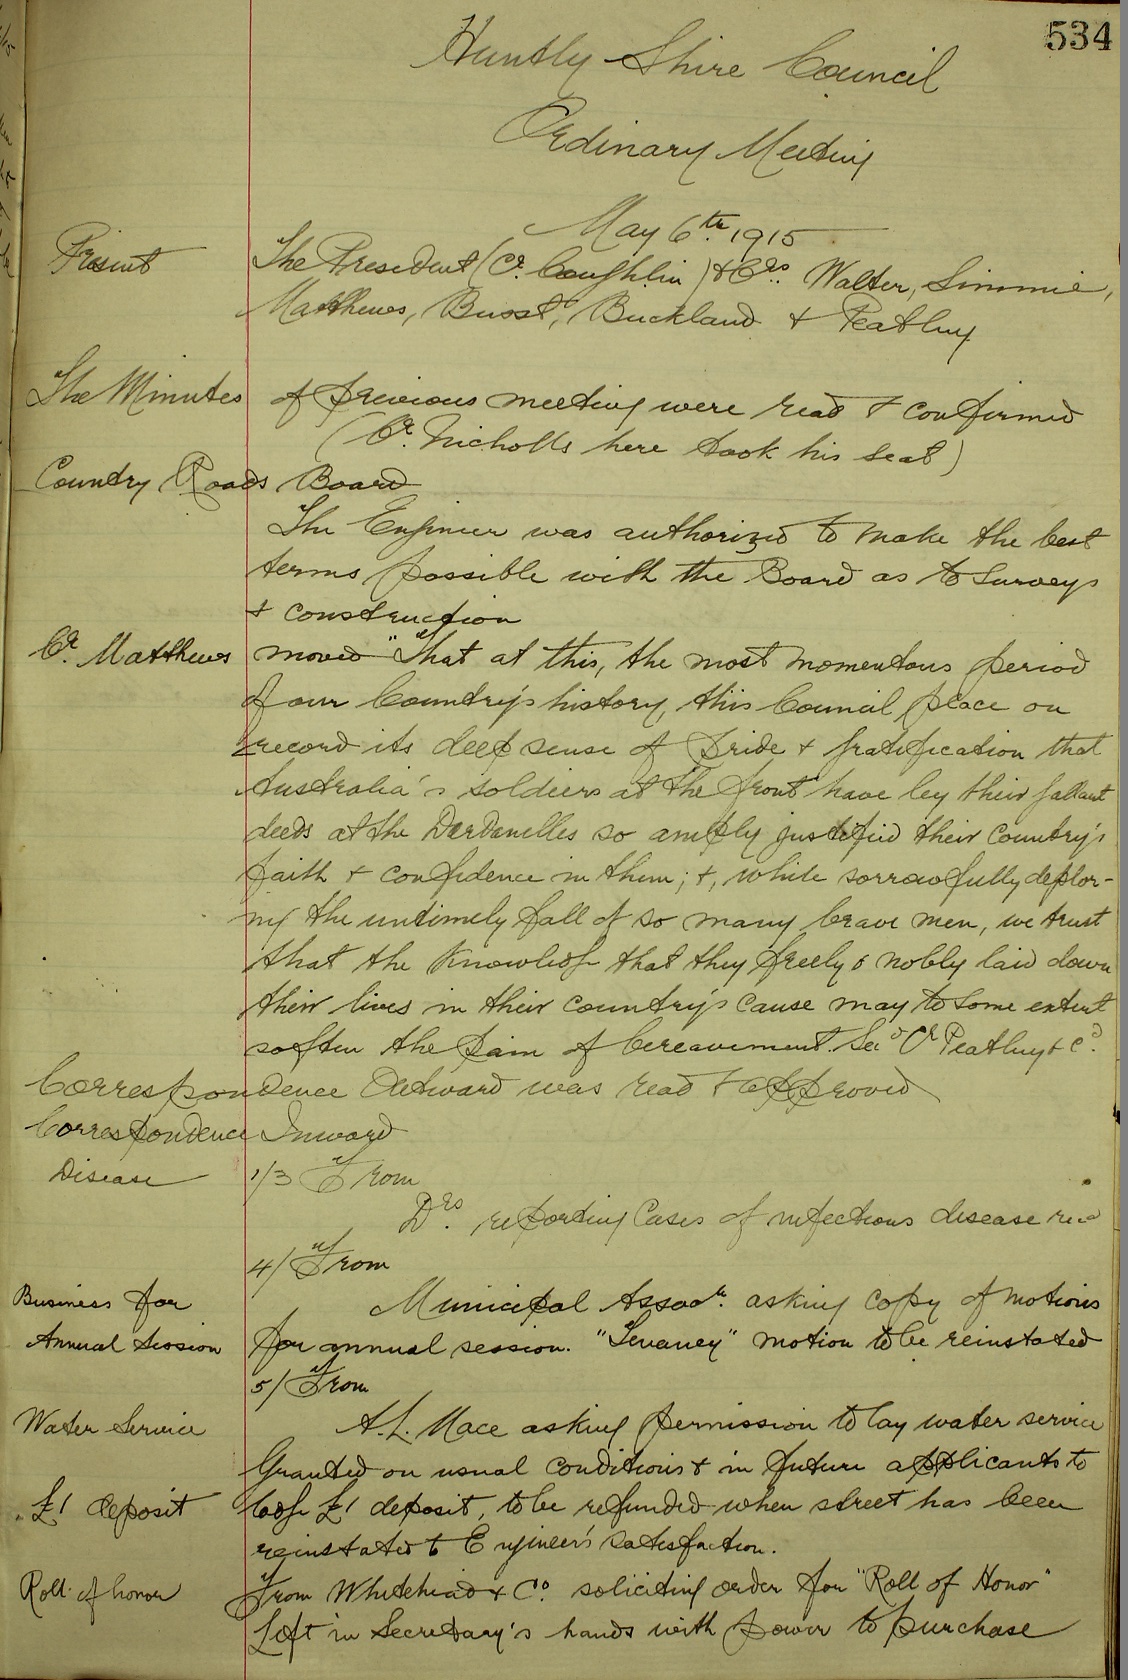 534
Huntly Shire Council
Ordinary Meeting
May 6th. 1915
Present The President (Cr. Coughlin) & Crs. Walter, Simmie,
Matthews, Busst, Buckland & Peatling
The Minutes of previous meeting were read & confirmed
(Cr. Nicholls here took his seat)
Country Roads Board
The Engineer was authorized to make the best
terms possible with the Board as to surveys
& construction
Cr. Matthews moved "That at this, the most momentous period
of our Country's history, this Council place on
record its deep sense of pride & gratification that
Australia's soldiers at the front have by their gallant
deeds at the Dardanelles so amply justified their country's
faith & confidence in them; &, while sorrowfully deplor-
ing the untimely fall of so many brave men, we trust
that the knowledge that they freely & nobly laid down
their lives in their country's cause may to some extent
soften the pain of bereavement. Secd Cr Peatling & Cd.
Correspondence Outward was read & approved
Correspondence Inward
Disease 1/3 From
Drs. reporting Cases of infectious disease recd
4/ From
Business for Municipal Assocn. asking copy of motions
Annual Session for annual session. motion to be reinstated
5/ From
Water Service A.L. Mace asking permission to lay water service
Granted on usual conditions & in future applicants to
£1 deposit lodge £1 deposit, to be refunded when street has been
reinstated to Engineer's satisfaction.
Roll of honor From Whitehead & Co. soliciting order for "Roll of Honor"
Left in Secretary's hands with power to purchase